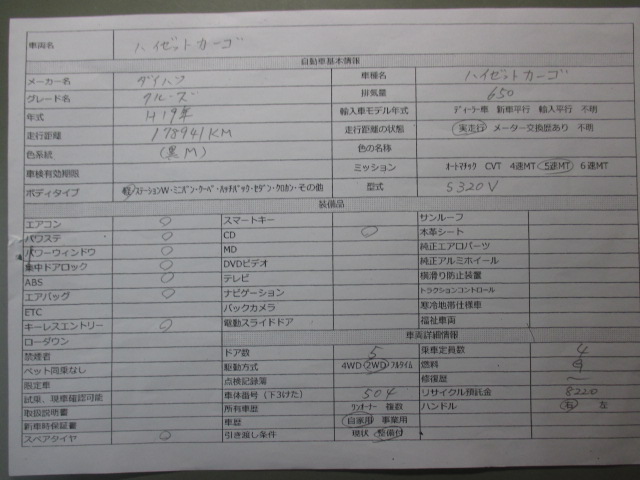 車両名 ハイゼットカーゴ
自動車基本情報
メーカー名 ダイハツ 車種名 ハイゼットカーゴ
グレード名 クルーズ 排気量 650
年式 H19年 輸入車モデル年式 ディーラー車 新車平行 輸入平行 不明
走行距離 178941KM 走行距離の状態 実走行 メーター交換歴あり 不明
色系統 (黒M) 色の名称
車検有効期限 ミッション オートマチック CVT 4速MT 5速MT 6速MT
ボディタイプ 軽/ステーションW・ミニバン・クーペ・ハッチバック・セダン・クロカン・その他 型式 S320V
装備品
エアコン ○ スマートキー サンルーフ
パワステ ○ CD ○ 本革シート
パワーウィンドウ ○ MD 純正エアロパーツ
集中ドアロック ○ DVDビデオ 純正アルミホイール
ABS ○ テレビ 横滑り防止装置
エアバッグ ○ ナビゲーション トラクションコントロール
ETC バックカメラ 寒冷地帯仕様車
キーレスエントリー ○ 電動スライドドア 福祉車両
ローダウン 車両詳細情報
禁煙者 ドア数 5 乗車定員数 4
ペット同乗なし 駆動方式 4WD 2WD フルタイム 燃料
限定車 点検記録簿 修復歴
試乗、現車確認可能 車体番号(下3けた) 504 リサイクル預託金 8220
取扱説明書 所有車歴 ワンオーナー 複数 ハンドル 右 左
新車時保証書 車歴 自家用 事業用
スペアタイヤ ○ 引き渡し条件 現状 整備付